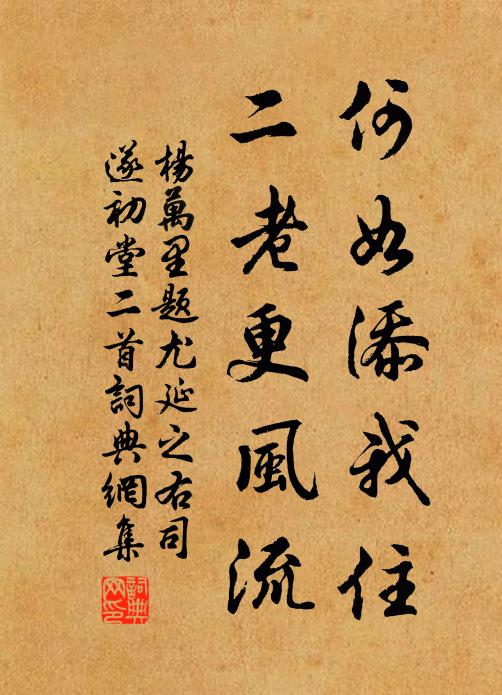 何如添我住
二老更風流
楊萬里題尤延之右司
遂初堂二首詞典網集
詞典
网印